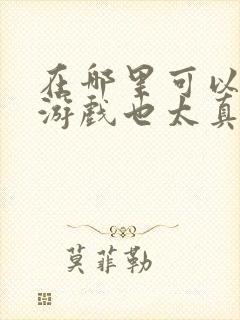 在哪里可以
游戏也太真
莫菲勒